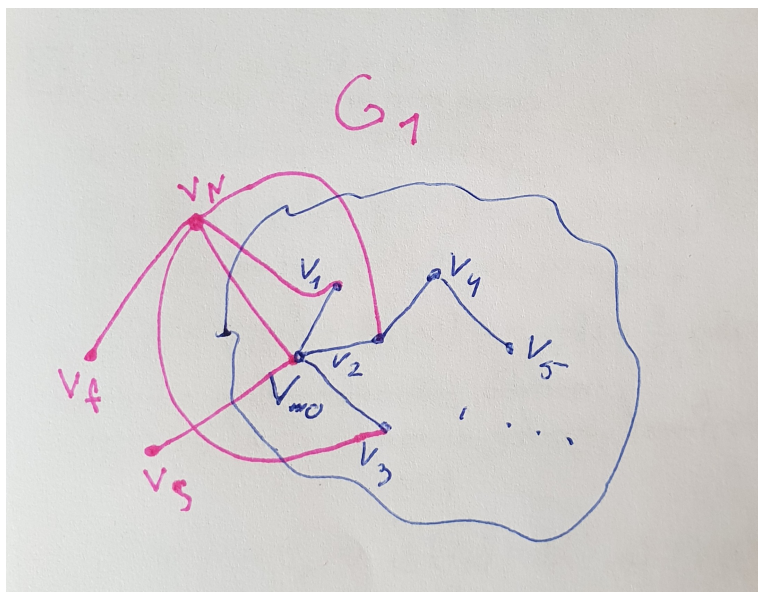 G1
VN
V1
V4
V2
V5
Vf
Vm0
V3
Vs